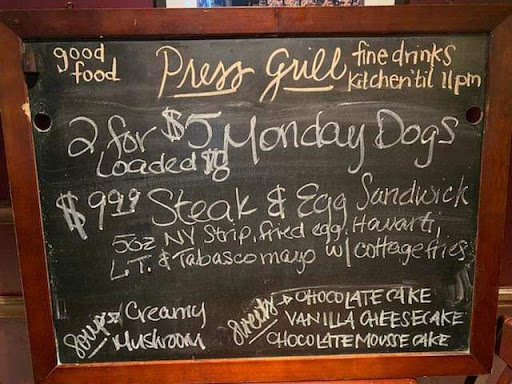 good food
Press Grill
fine drinks
kitchen 'til 11pm
2 for $5 Monday Dogs
Loaded $8
$9.99 Steak & Egg Sandwick
5oz NY Strip, fried egg, Havarti,
L.T. & Tabasco mayo w/ cottage fries
Soups Creamy
Mushroom
Sweets → CHOCOLATE CAKE
VANILLA CHEESECAKE
CHOCOLATE MOUSSE CAKE